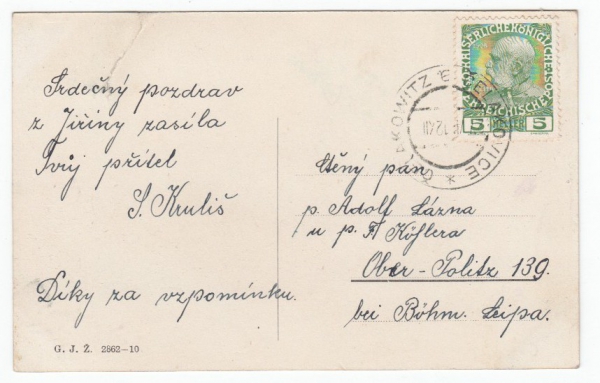 Srdečný pozdrav
z Jiřiny zasíla
Tvůj přítel
S. Kruliš
Díky za vzpomínku.
G. J. Ž. 2862-10
KAISERLICHE KÖNIGLICHE
ÖSTERREICHISCHE
5 HELLER 5
KOWITZ
KOVICE
Ctěný pan
p. Adolf Lázna
u p. F Köhlera
Ober-Politz 139.
bei Böhm. Leipa.